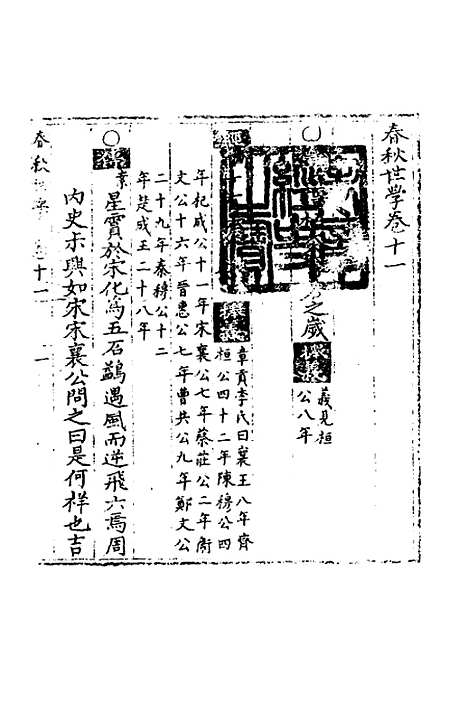 春秋世学卷十一
之歲
義見桓
公八年
章貢李氏曰襄王八年齊
桓公四十二年陳穆公四
年杞成公十一年宋襄公七年蔡莊公二年衛
文公十六年晉惠公七年曹共公九年鄭文公
二十九年秦穆公十二
年楚成王二十八年
星實於宋化為五石鷁遇風而逆飛六焉周
內史叔興如宋宋襄公問之曰是何祥也吉
春秋
十一